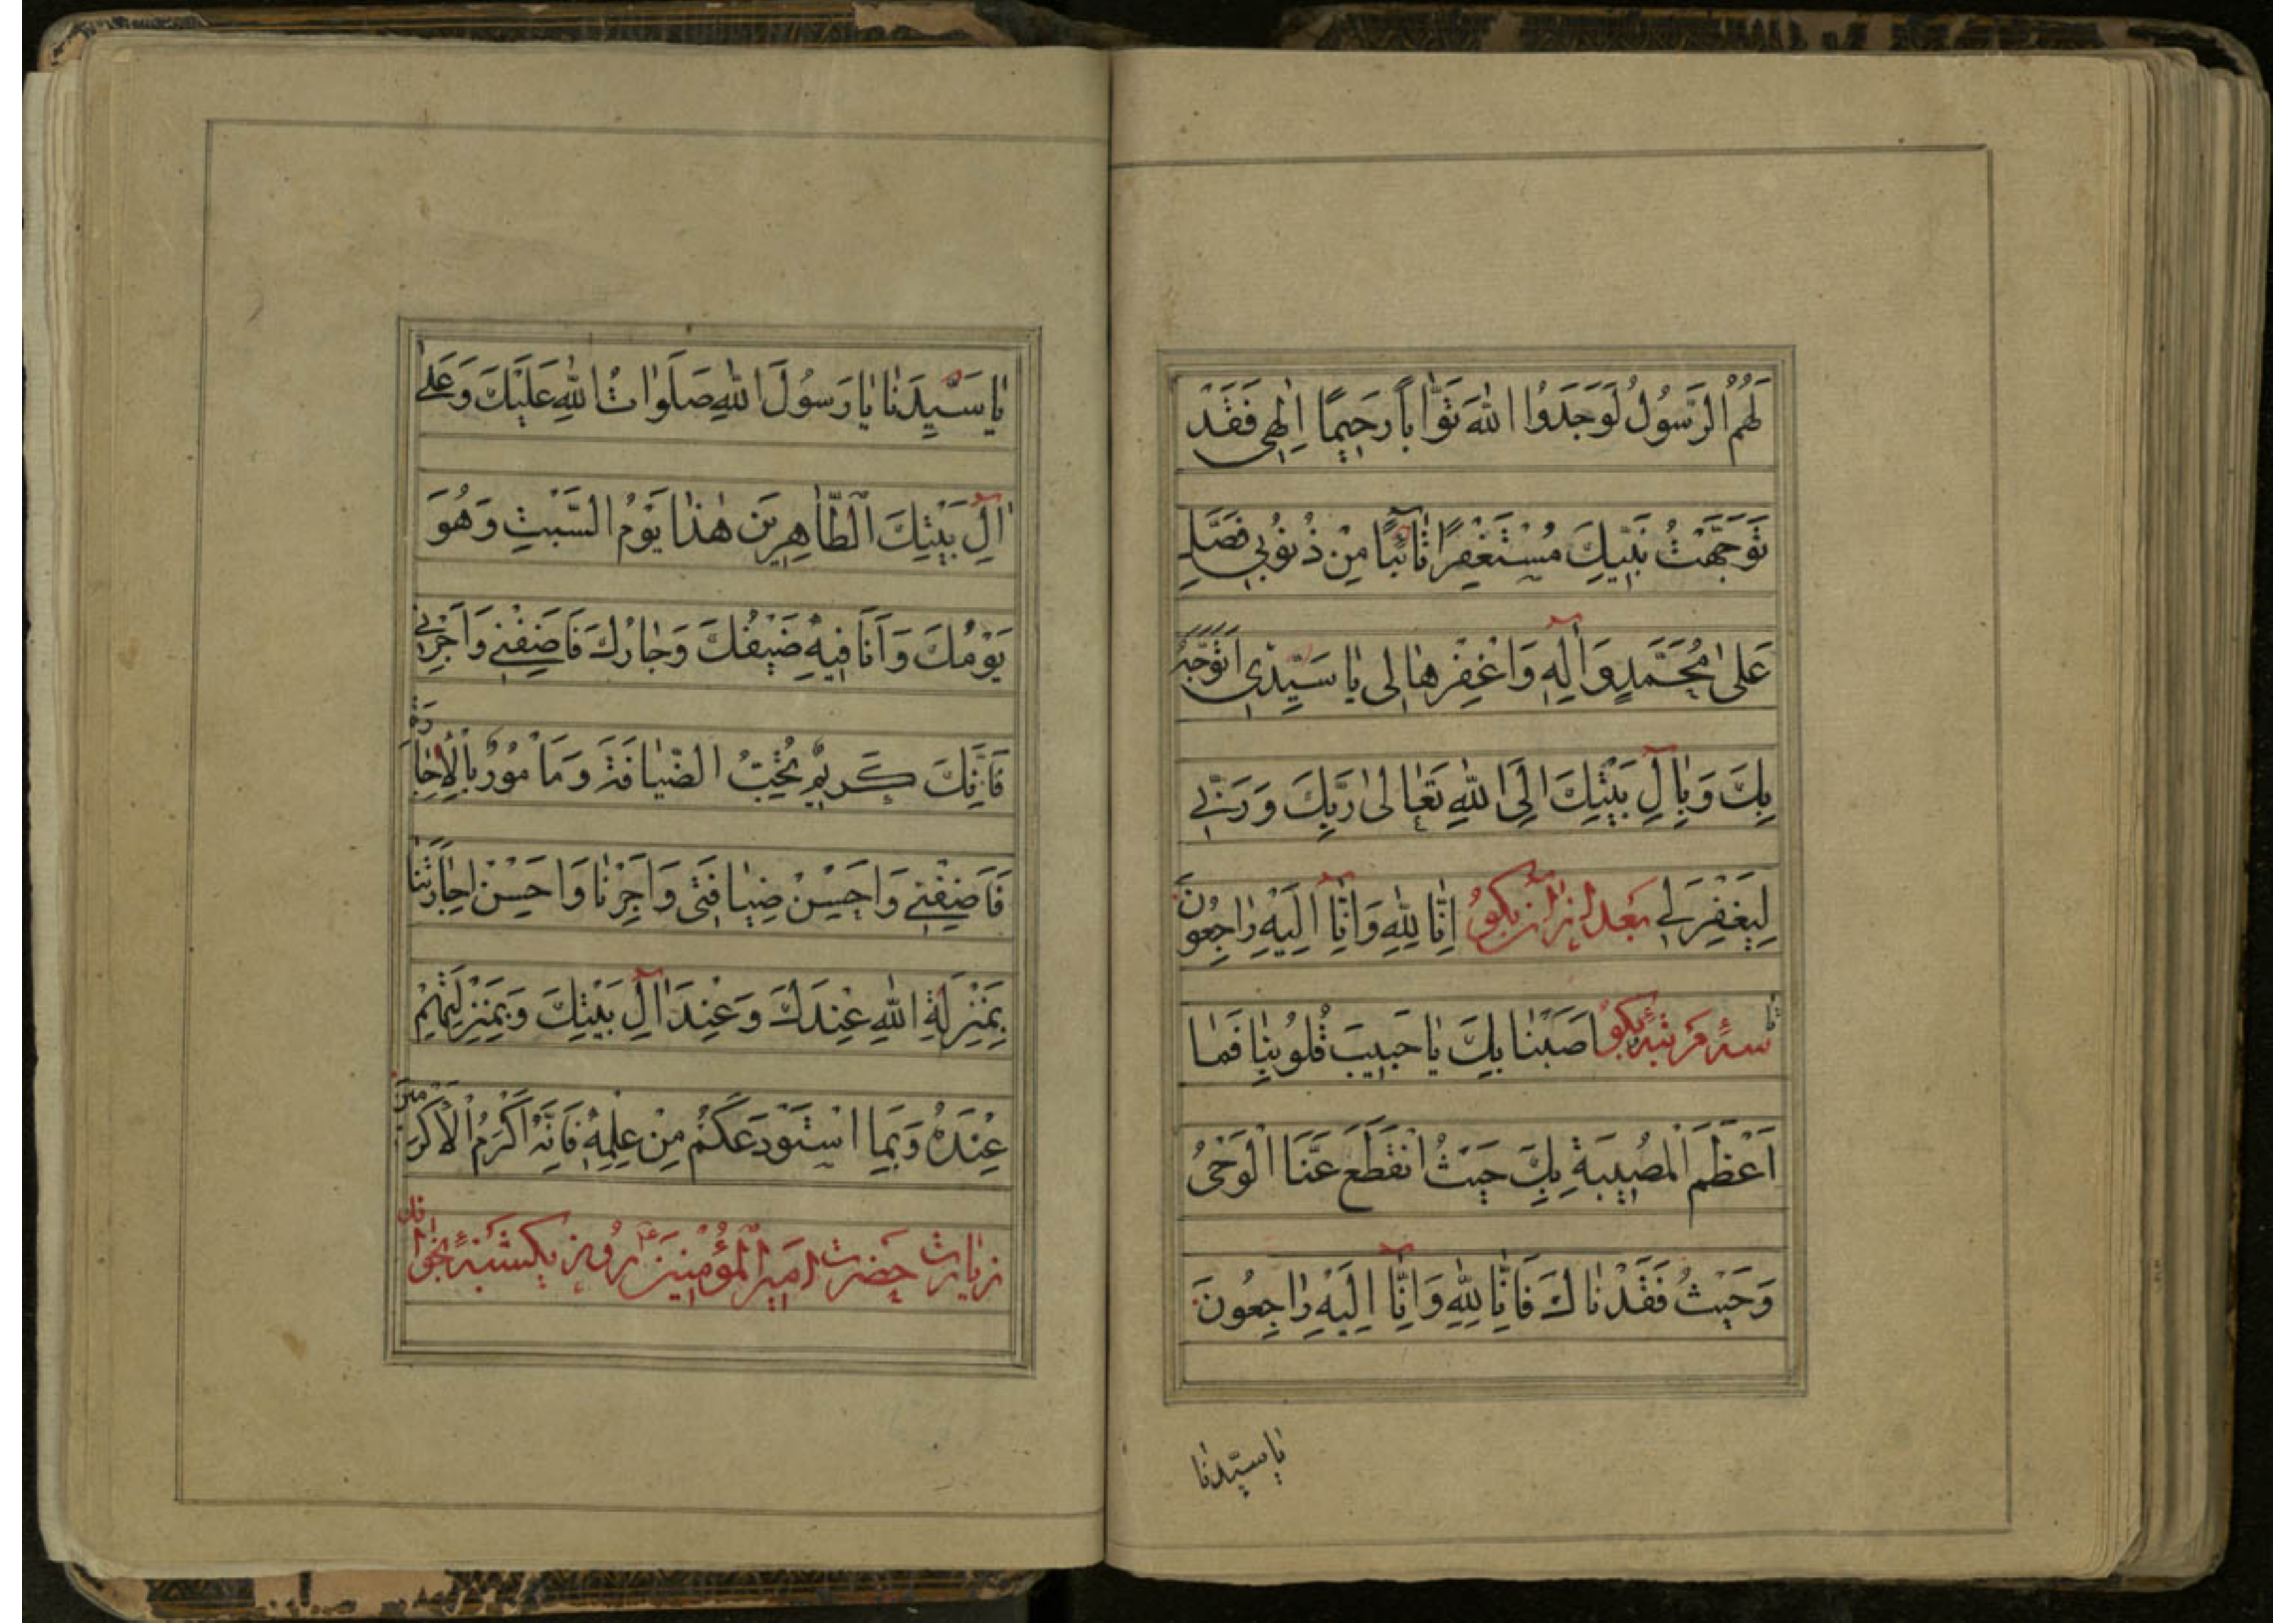 لَهُمُ الرَّسُولُ لَوَجَدُوا اللهَ تَوَّاباً رَحِيمًا اِلٰهِي فَقَدْ
تَوَجَّهْتُ نَبِيَّكَ مُسْتَغْفِرًا تَائِبًا مِنْ ذُنُوبِي فَصَلِّ
عَلىٰ مُحَمَّدٍ وَاٰلِهِ وَاغْفِرْهٰا لِي يٰا سَيِّدِي اَتَوَجَّهُ
بِكَ وَبِاٰلِ بَيْتِكَ اِلَى اللهِ تَعٰالىٰ رَبِّكَ وَرَبِّي
لِيَغْفِرَ لِي بعد از آن بگو اِنّٰا لِلّٰهِ وَاِنّٰآ اِلَيْهِ رٰاجِعُونَ
تا سه مرتبه بگو اُصِبْنٰا بِكَ يٰا حَبِيبَ قُلُوبِنٰا فَمٰا
اَعْظَمَ الْمُصِيبَةِ بِكَ حَيْثُ انْقَطَعَ عَنَّا الْوَحْيُ
وَحَيْثُ فَقَدْنٰاكَ فَاِنّٰا لِلّٰهِ وَاِنّٰآ اِلَيْهِ رٰاجِعُونَ
يٰا سيّدنٰا
يٰا سَيِّدَنٰا يٰا رَسُولَ اللهِ صَلَوٰاتُ اللهِ عَلَيْكَ وَعَلىٰ
اٰلِ بَيْتِكَ الطّٰاهِرِينَ هٰذٰا يَوْمُ السَّبْتِ وَهُوَ
يَوْمُكَ وَاَنَا فِيهِ ضَيْفُكَ وَجٰارُكَ فَاَضِفْنِي وَاَجِرْنِي
فَاِنَّكَ كَرِيمٌ تُحِبُّ الضِّيٰافَةَ وَمَأْمُورٌ بِالْاِجٰارَةِ
فَاَضِفْنِي وَاَحْسِنْ ضِيٰافَتِي وَاَجِرْنٰا وَاَحْسِنْ اِجٰارَتَنٰا
بِمَنْزِلَةِ اللهِ عِنْدَكَ وَعِنْدَ اٰلِ بَيْتِكَ وَبِمَنْزِلَتِهِمْ
عِنْدَهُ وَبِمَا اسْتَوْدَعَكُمْ مِنْ عِلْمِهِ فَاِنَّهُ اَكْرَمُ الْاَكْرَمِينَ
زيارت حضرت امير المؤمنين روز يكشنبه بخوان